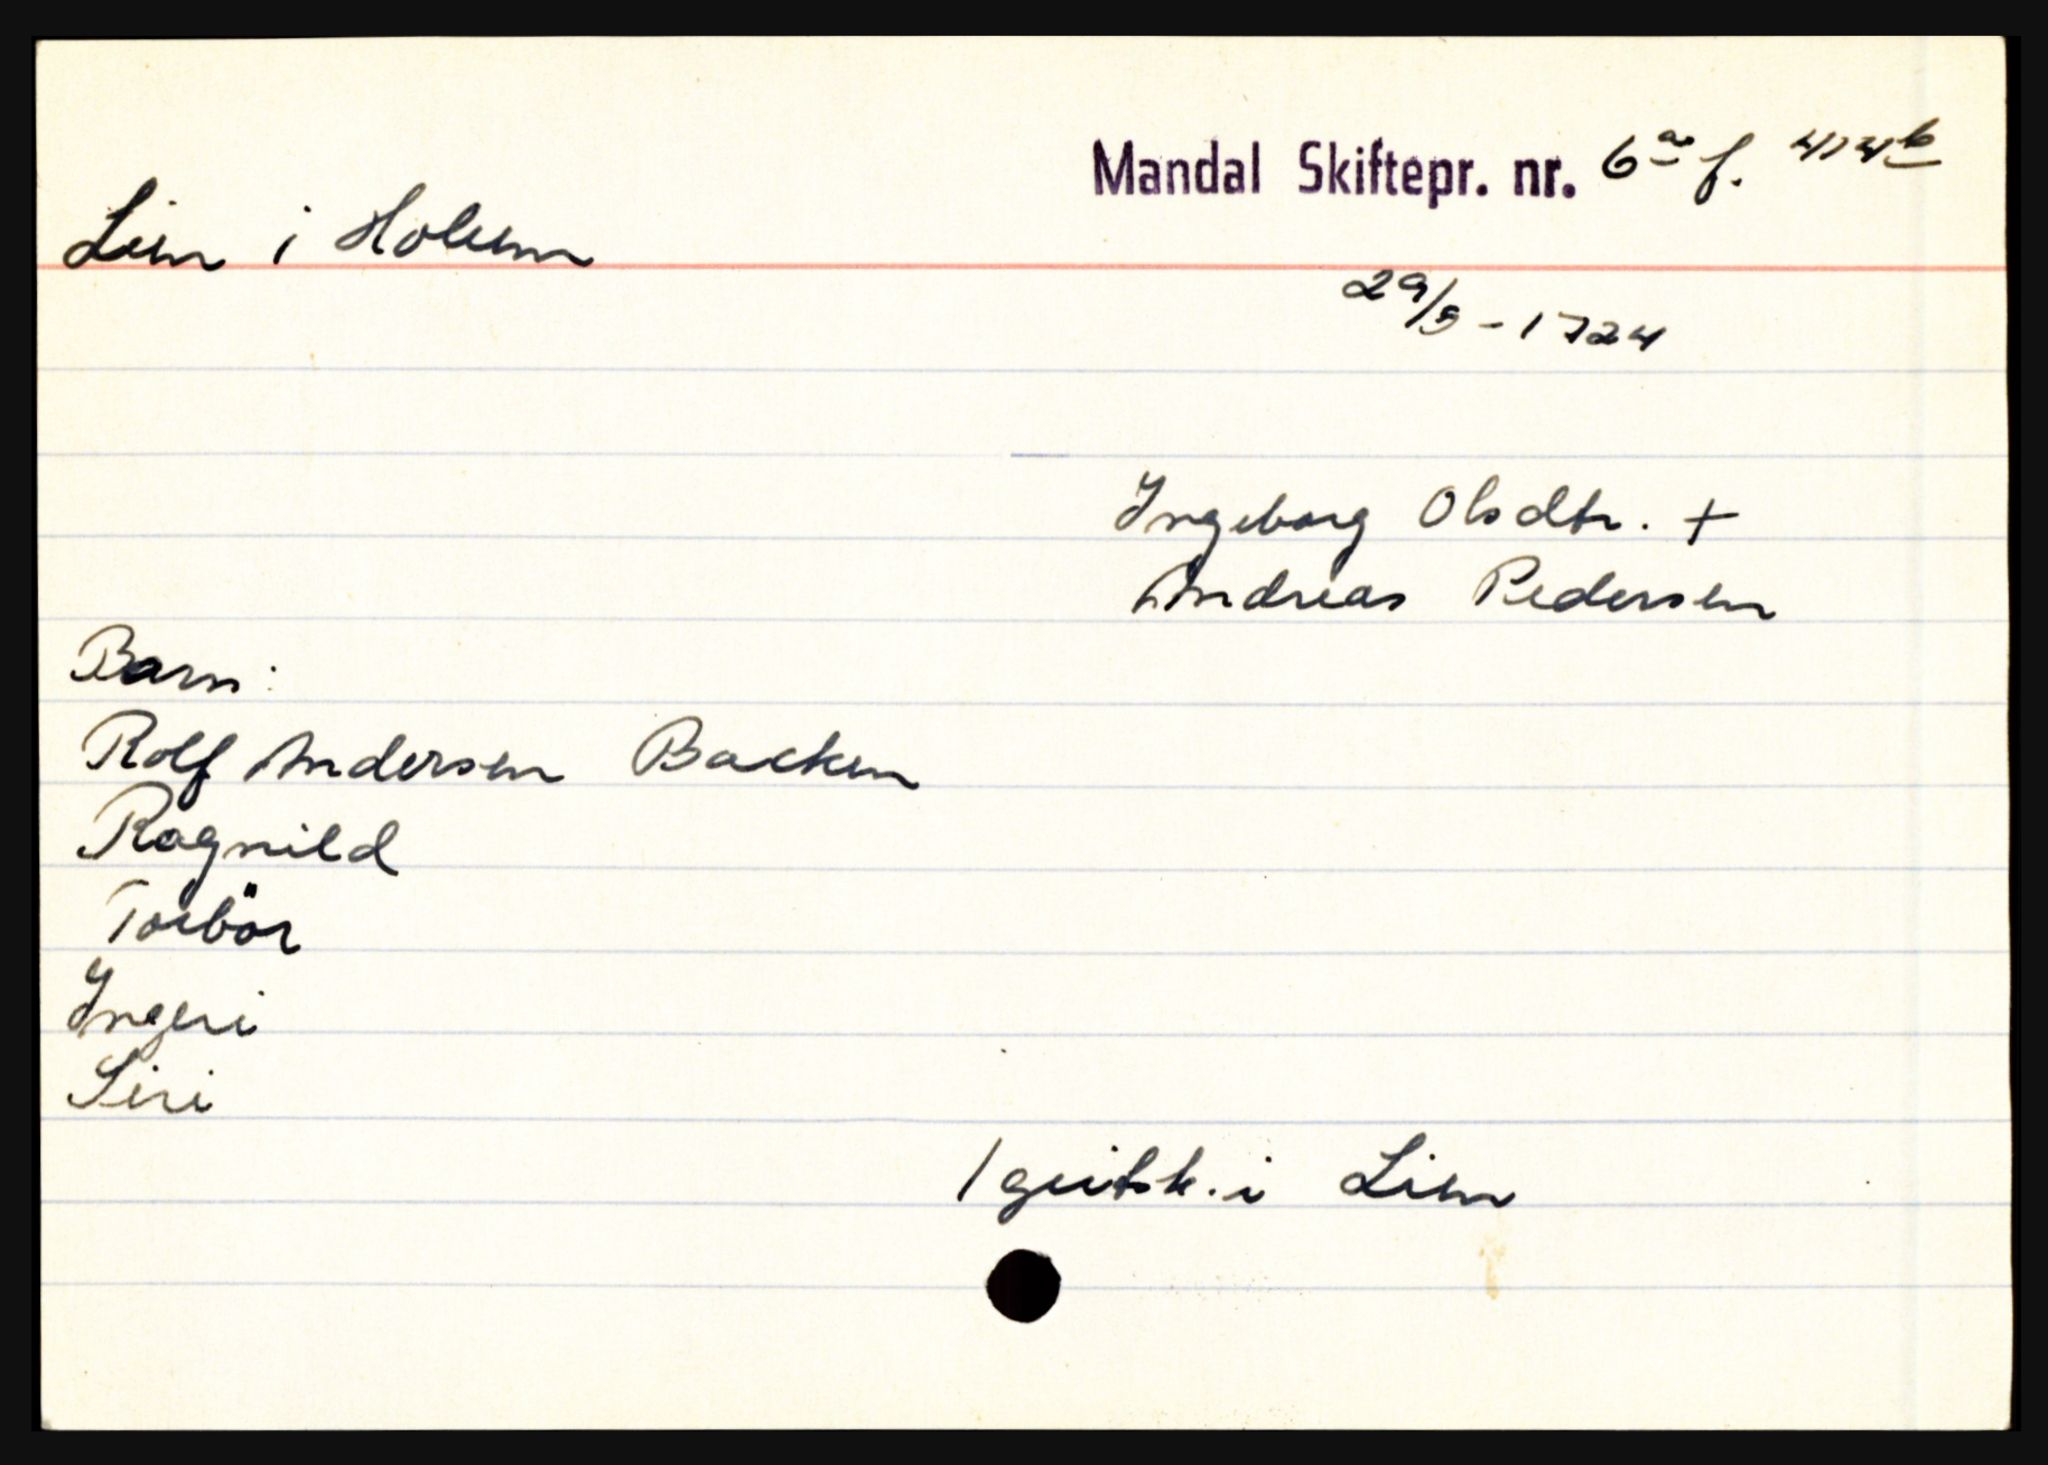 Mandal Skiftepr. nr. 6a f. 414b
Lien i Holum
29/5 - 1724
Ingeborg Olsdtr. +
Andreas Pedersen
Barn:
Rolf Andersen Backen
Ragnild
Torbör
Ingeri
Siri
1 geitsk. i Lien